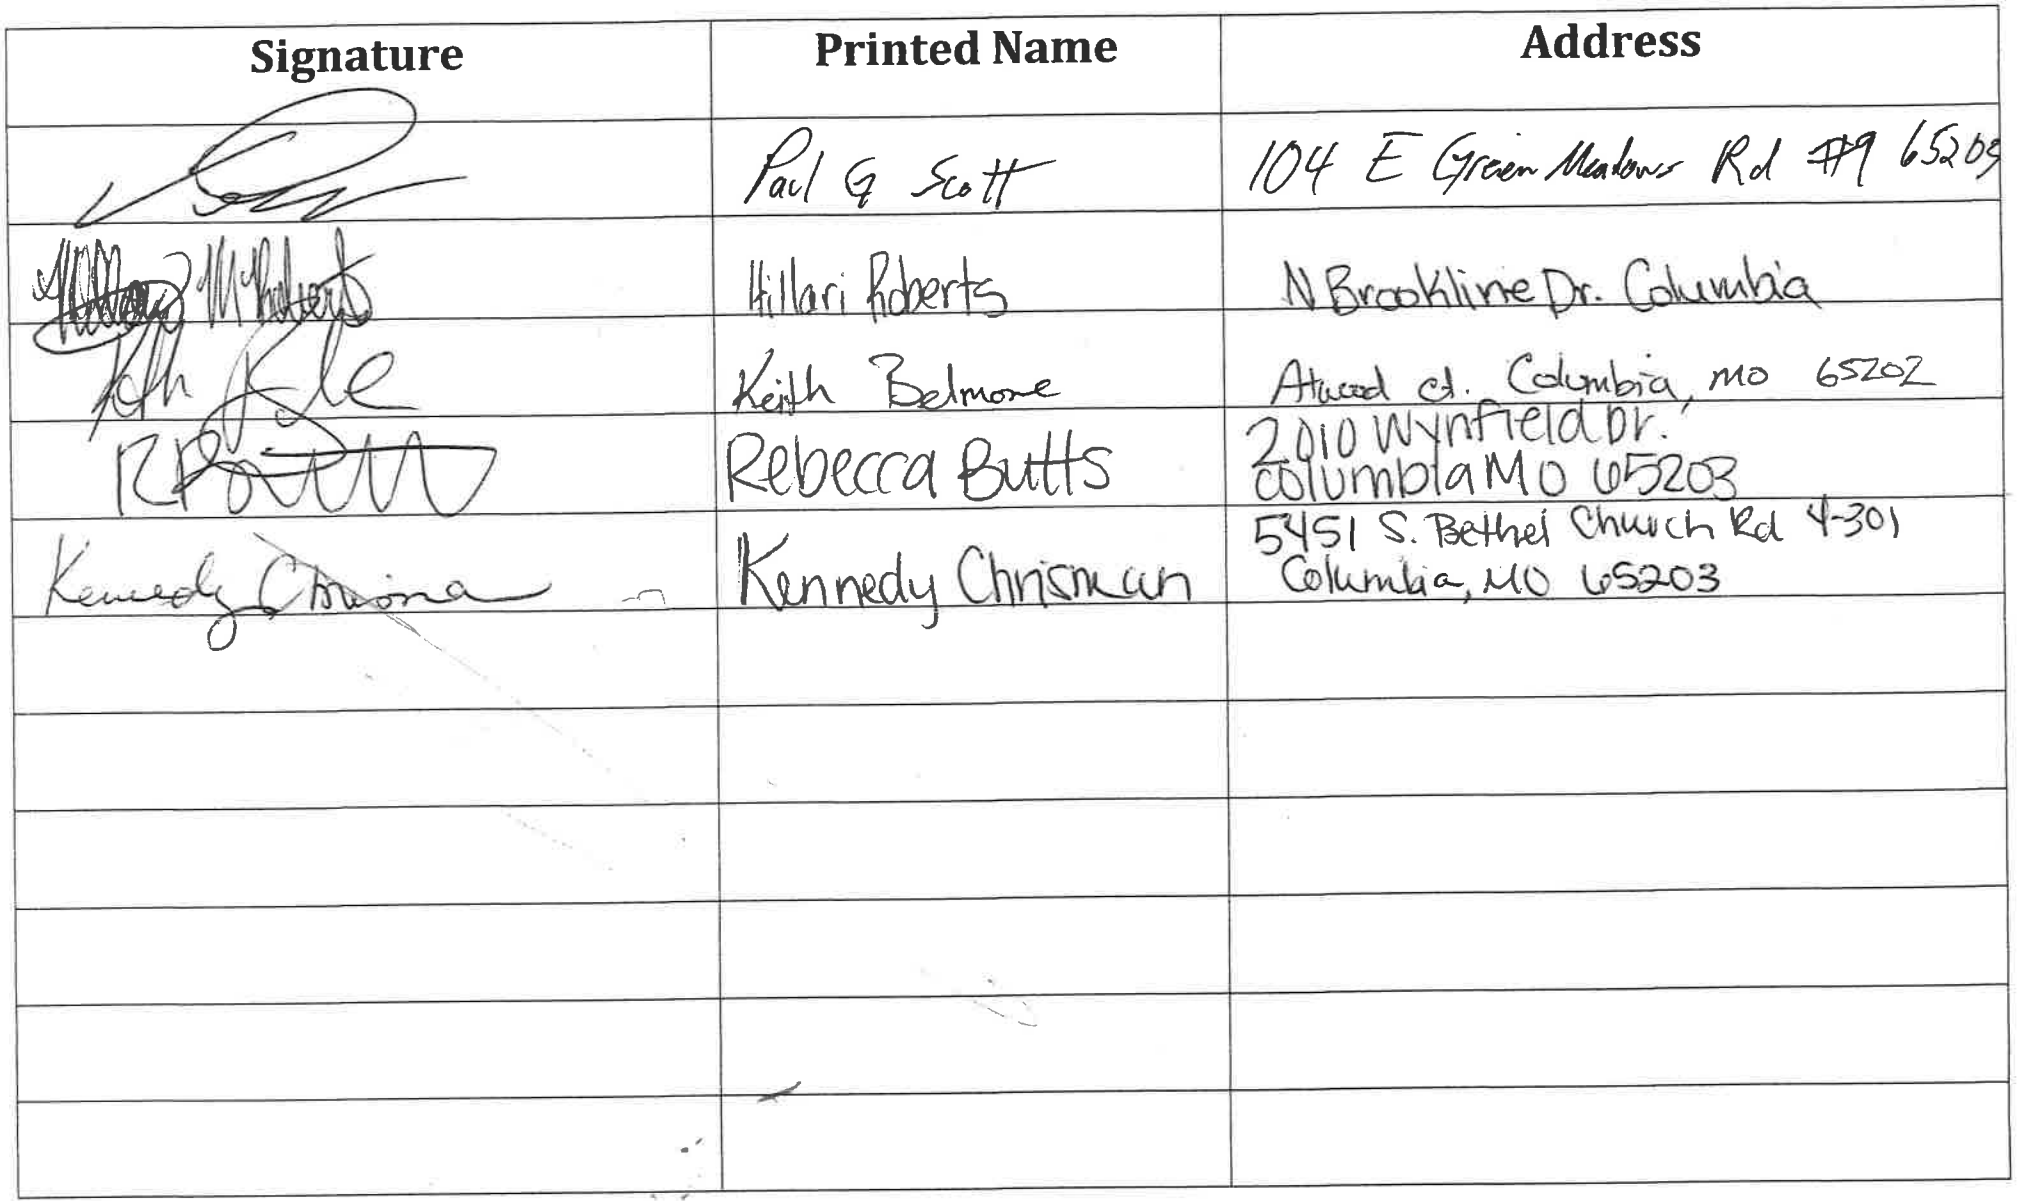 Signature Printed Name Address
Paul G Scott 104 E Green Meadows Rd #9 65203
Hillari Roberts N Brookline Dr. Columbia
Keith Belmore Atwood ct. Columbia, MO 65202
Rebecca Butts 2010 Wynfield Dr.
Columbia MO 65203
Kennedy Chrisman 5451 S. Bethel Church Rd 4-301
Columbia, MO 65203